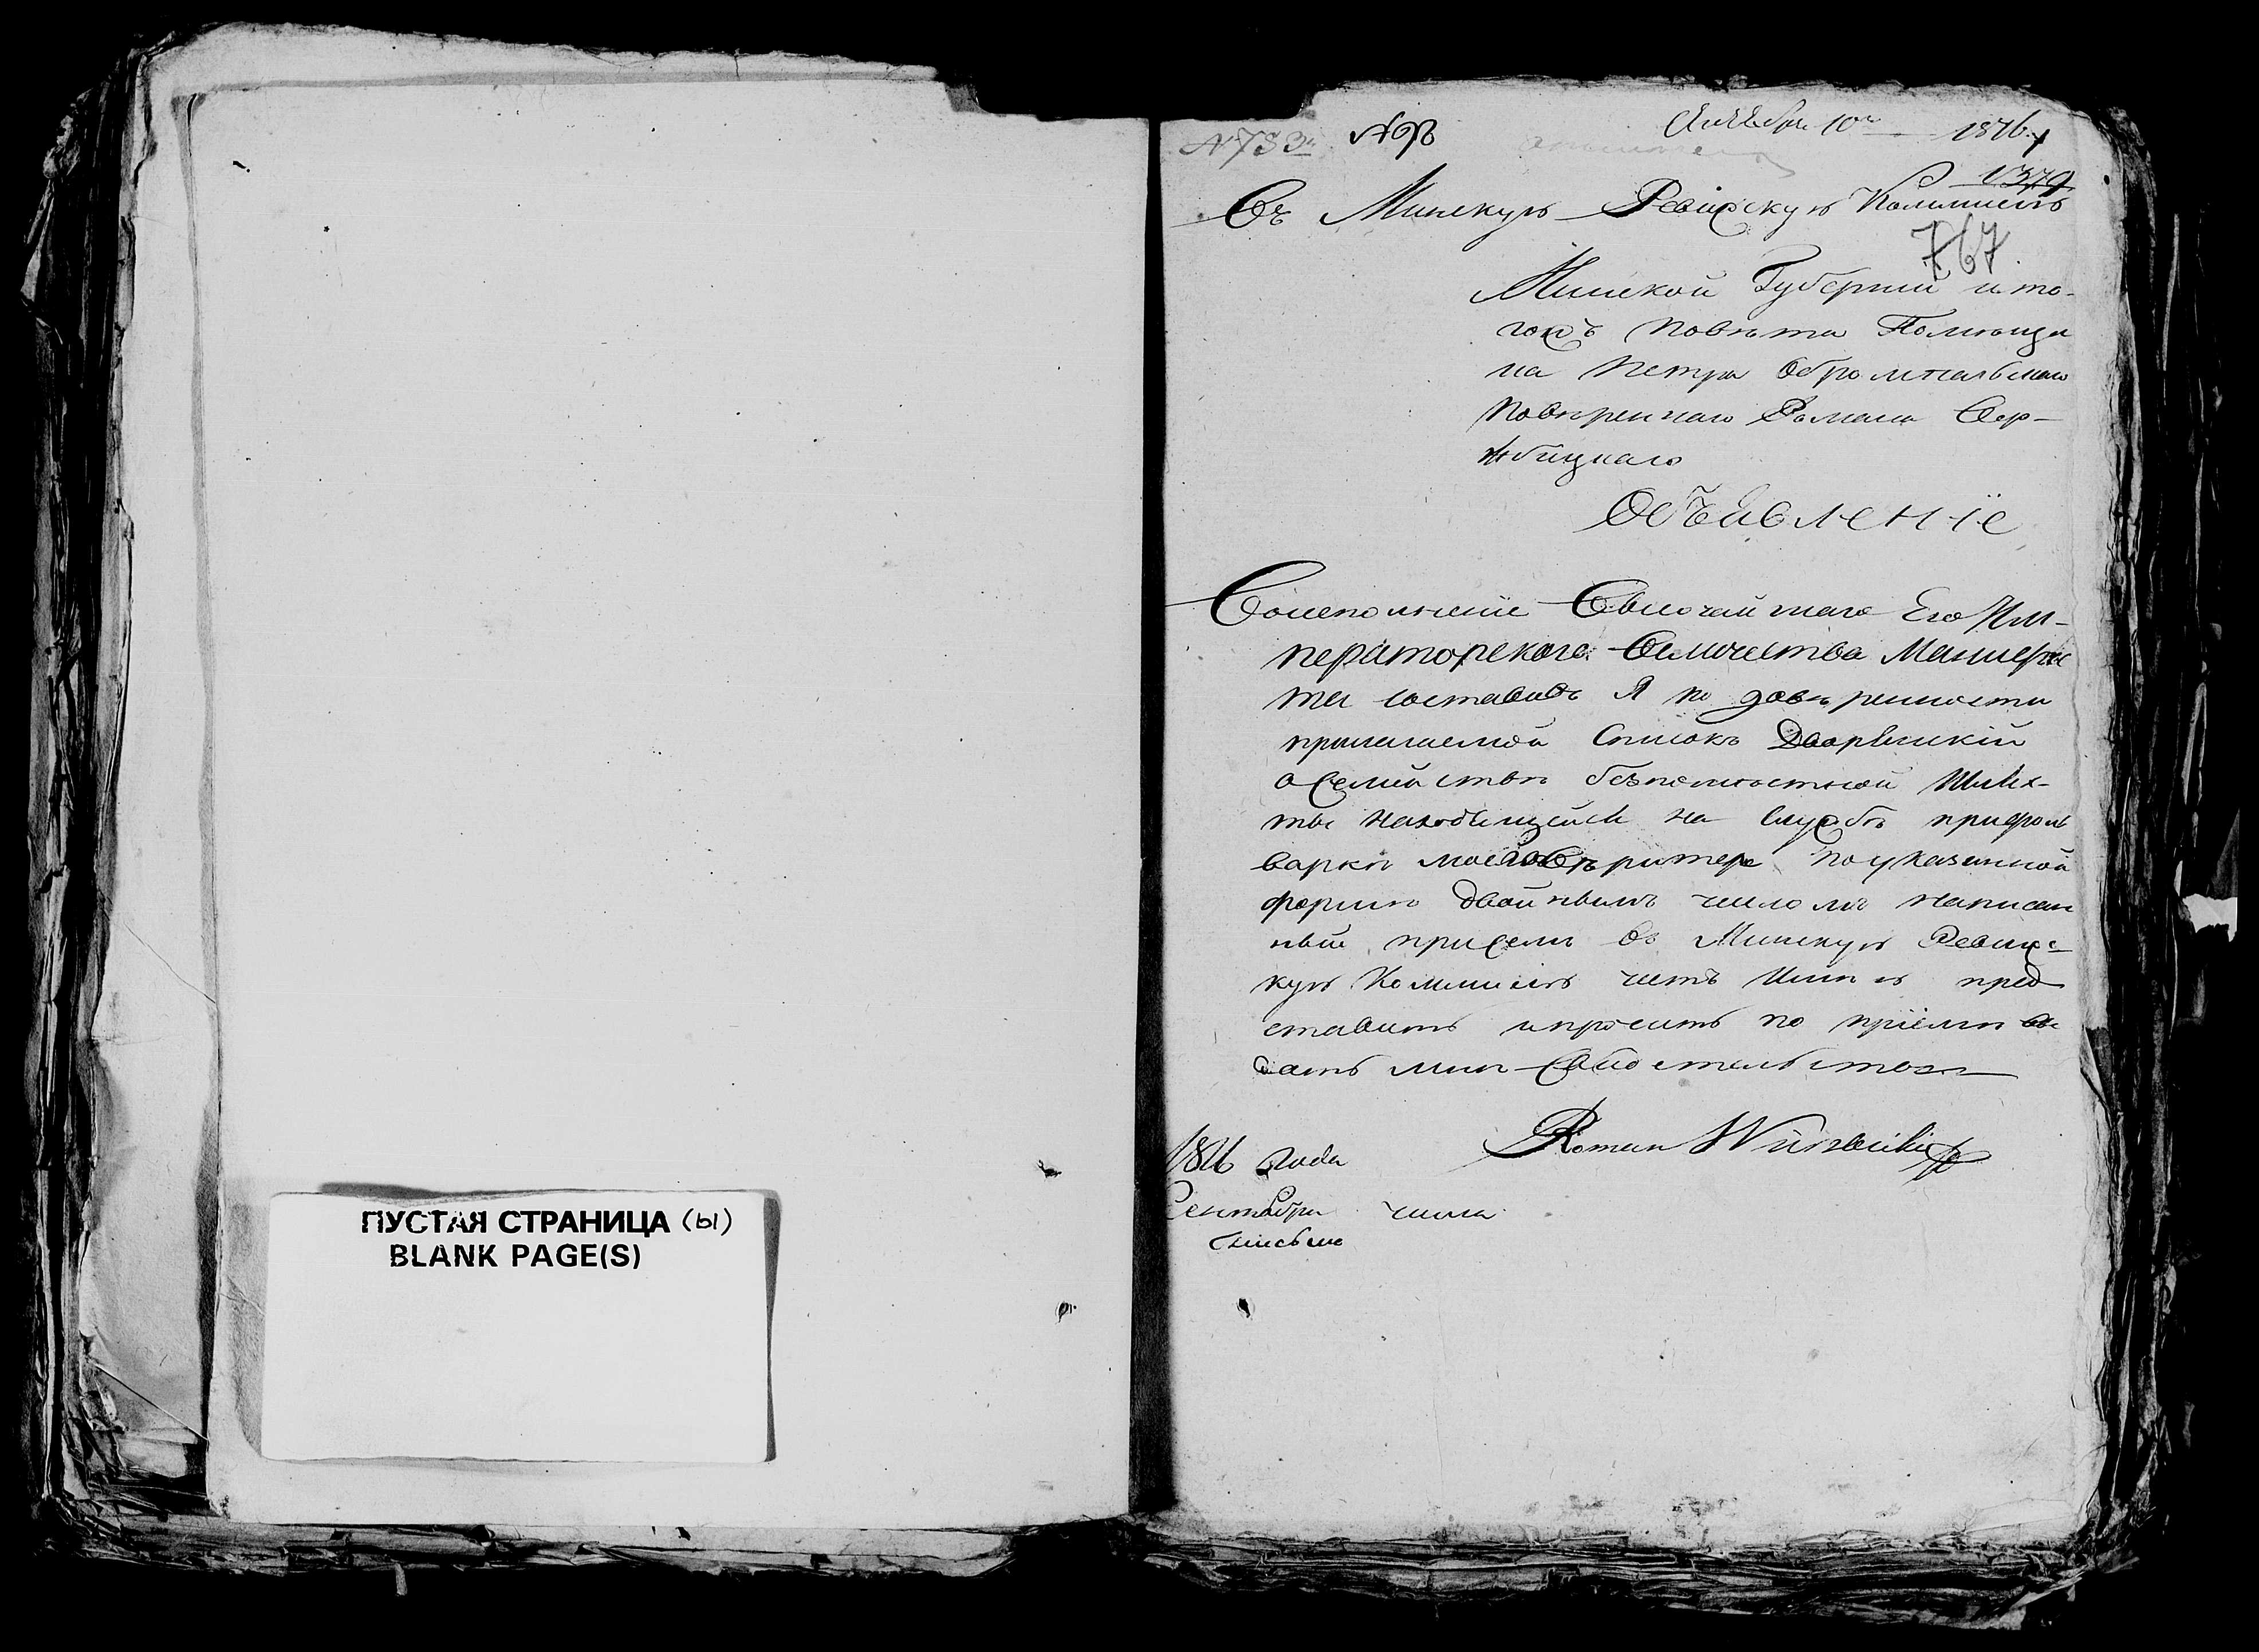 ПУСТАЯ СТРАНИЦА (ы)
BLANK PAGE(S)
№ 793
Октября 10го 1816
1379
Въ Минскую Ревизскую Коммисию
767
Минской Губернии и то-
гожъ повѣта Помѣщи
ка Петра
Повѣреннаго Романа Вер-
жбицкаго
Объявленіе
Воисполненіе Высочайшаго Его Им-
ператорскаго Величества Манифе
ста составивъ Я по довѣренности
прилагаемой Списокъ Дворянскій
о Семействѣ безпомѣстной Шлях-
ты находящейся на службѣ прифоль
варкѣ моего по указанной
формѣ двойнымъ числомъ написан
ный присемъ въ Минскую Ревизс-
кую Коммисию честь имѣю пред
ставить и просить по пріемѣ вы
дать мнѣ Свидетельство
Roman Wierzbicki
1816 года
Сентября числа